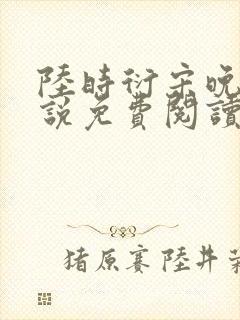 陸時衍宋晚
說免費閱讀
猪原赛陸井